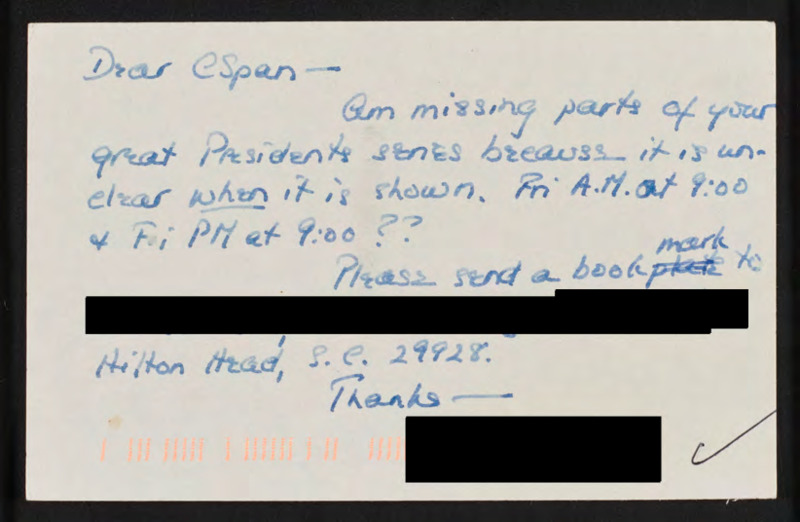 Dear CSpan —
Am missing parts of your
great Presidents series because it is un-
clear when it is shown. Fri A.M. at 9:00
& Fri PM at 9:00 ??
Please send a book plate mark to
Hilton Head, S.C. 29928.
Thanks —